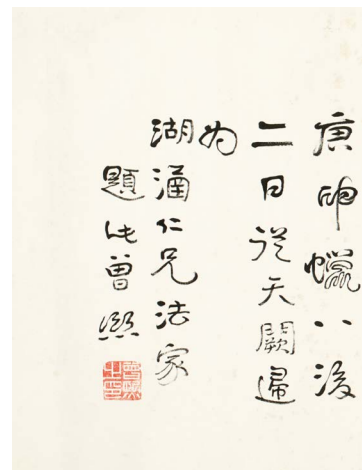 庚申蠟八後
二日從天闕歸
為
湖涵仁兄法家
題此曾熙
曾熙之印